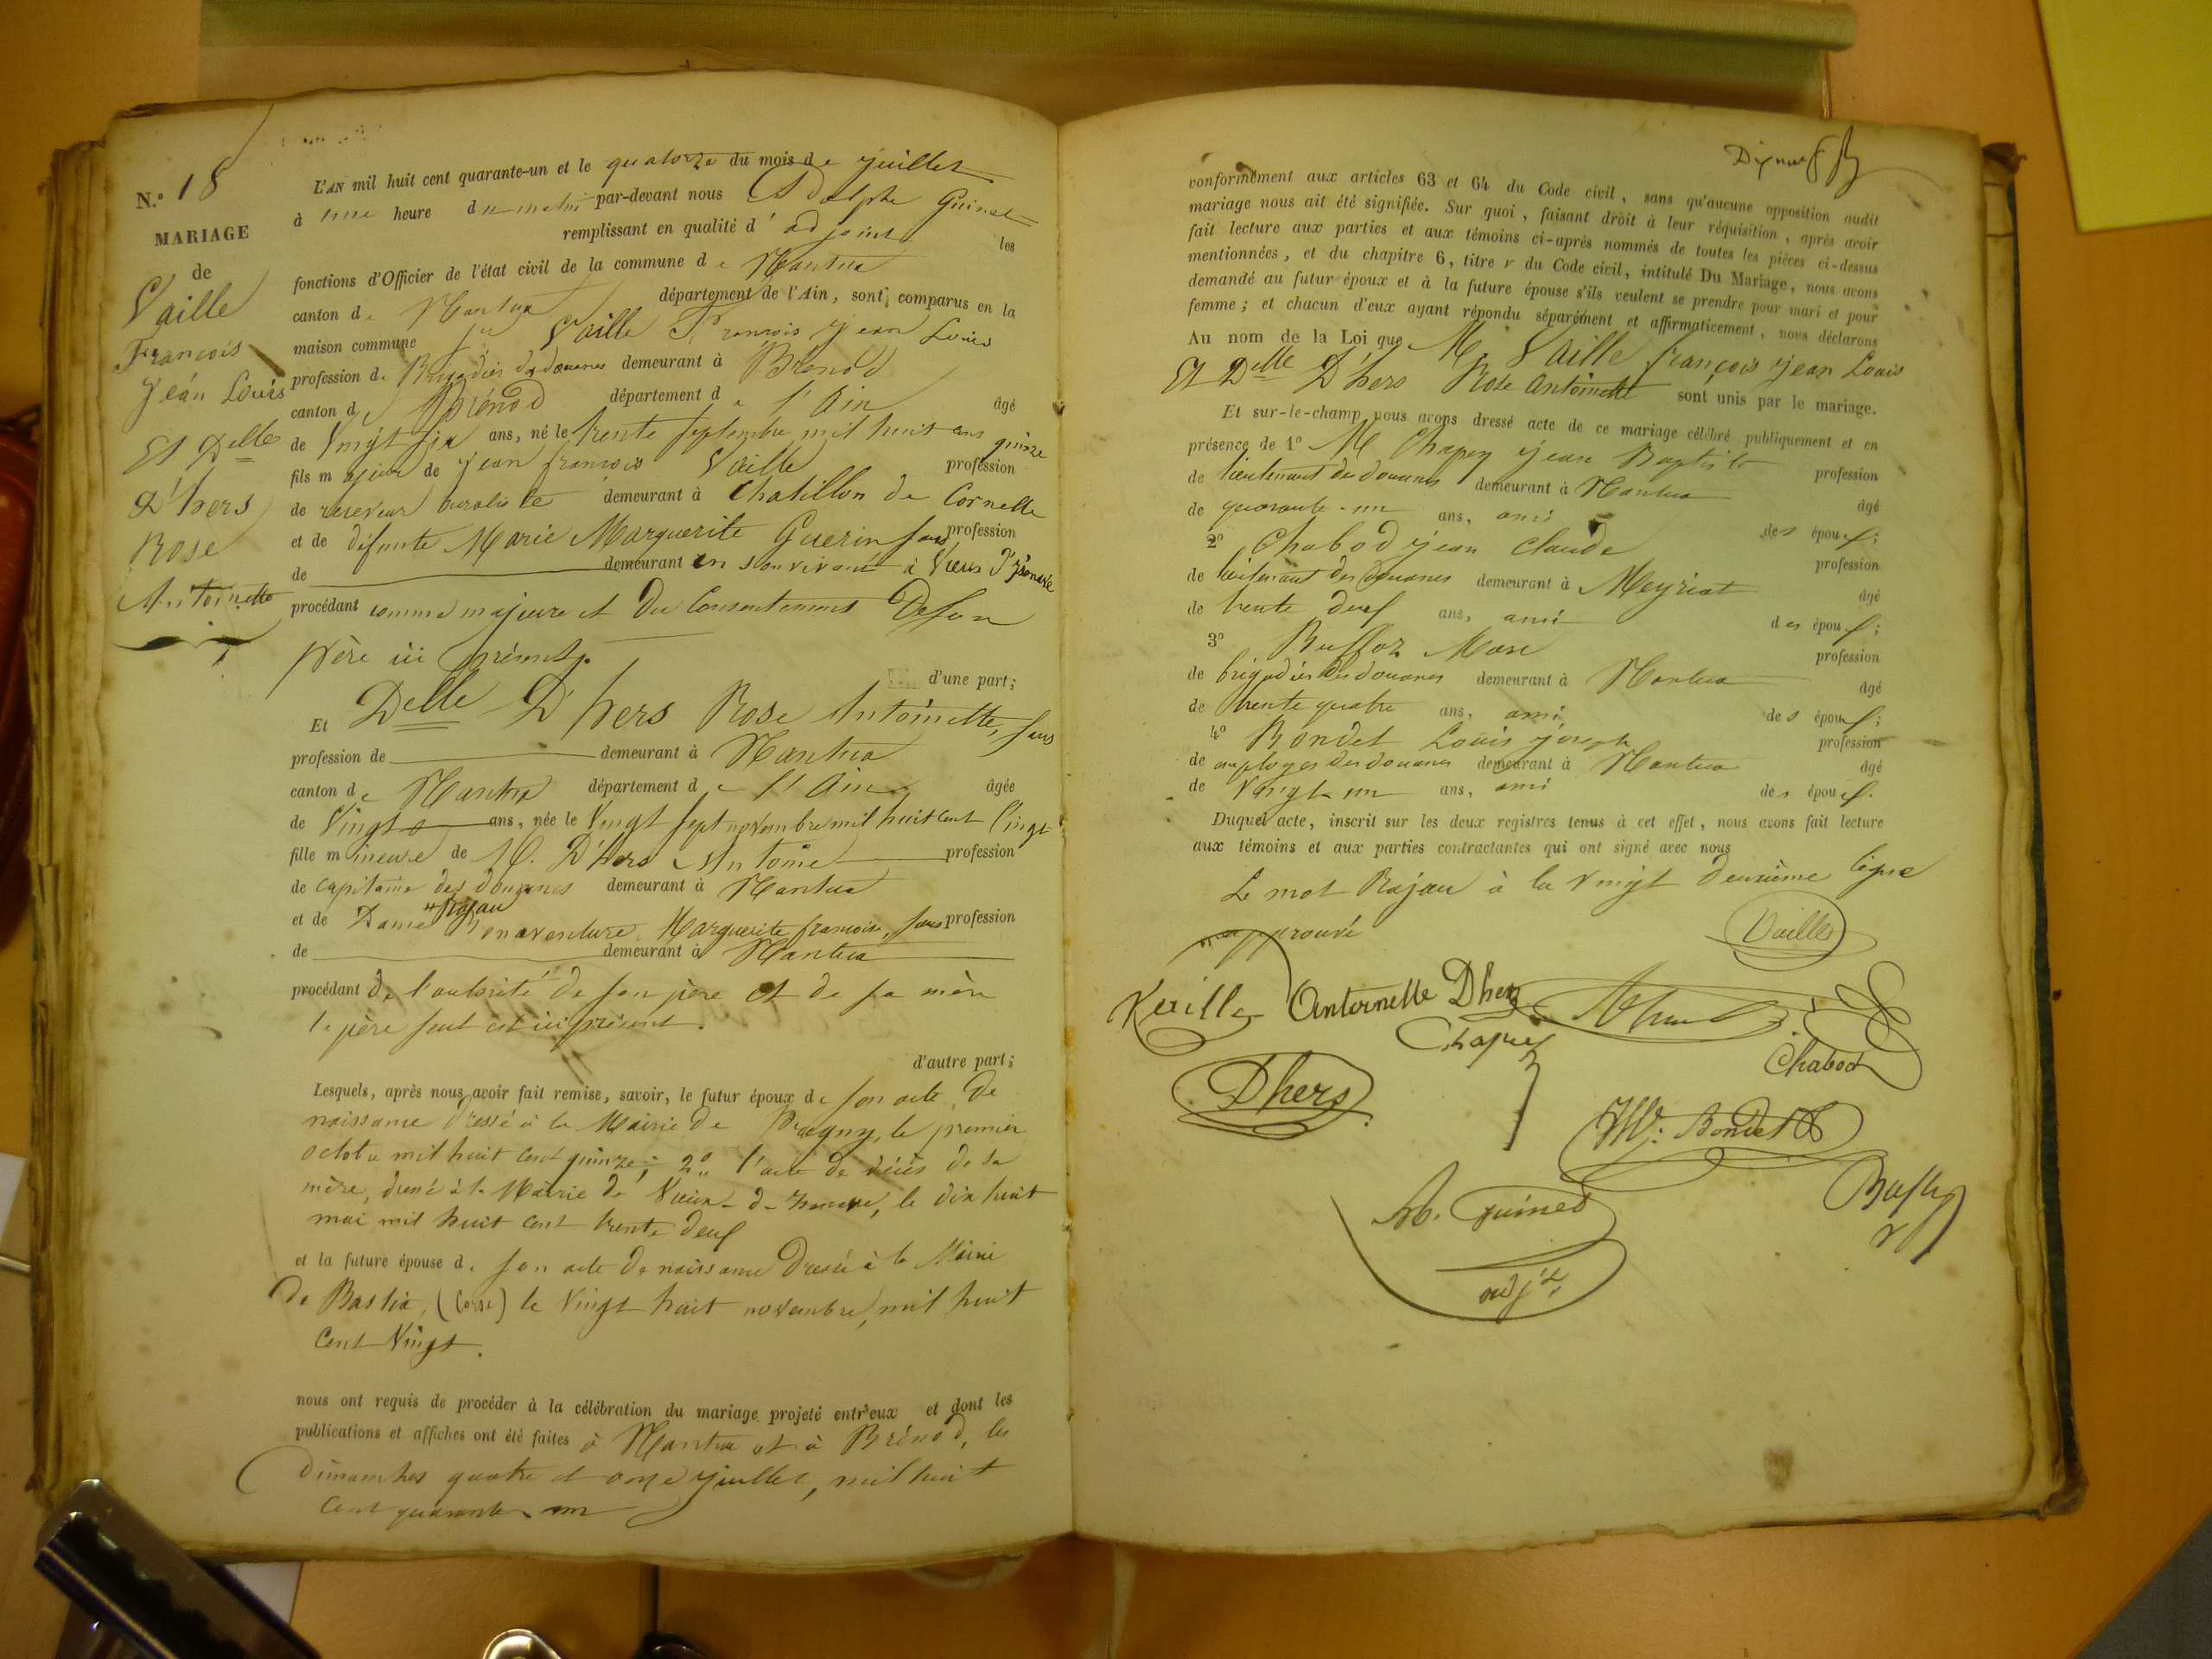 N.º 18
MARIAGE
de
Vaille
François
Jean Louis
Et Delle
D'hers
Rose
Antoinette
L'AN mil huit cent quarante-un et le quatorze du mois de juillet
à une heure du matin par-devant nous Adolphe Guinet
remplissant en qualité d'adjoint les
fonctions d'Officier de l'état civil de la commune de Nantua
canton de Nantua département de l'Ain, sont comparus en la
maison commune Vaille François Jean Louis
profession de Brigadier des douanes demeurant à Brénod
canton de Brénod département de l'Ain âgé
de Vingt six ans, né le trente septembre mil huit cens quinze
fils majeur de Jean françois Vaille profession
de receveur buraliste demeurant à Chatillon de Cornelle
et de défunte Marie Marguerite Guerin sans profession
de demeurant en son vivant à Vieux d'Izenave
procédant comme majeure et du Consentement De son
père ici présent.
d'une part;
Et Delle D'hers Rose Antoinette, sans
profession de demeurant à Nantua
canton de Nantua département de l'Ain âgée
de Vingt ans, née le Vingt sept novembre mil huit cent Vingt
fille mineure de M. D'hers Antoine profession
de capitaine des douanes demeurant à Nantua
et de Dame Rajau Bonaventure Marguerite françoise, sans profession
de demeurant à Nantua
procédant de l'autorité de son père et de sa mère
le père seul est ici présent.
d'autre part;
Lesquels, après nous avoir fait remise, savoir, le futur époux de son acte de
naissance dressé à la Mairie de le premier
octobre mil huit cent quinze; 2º l'acte de décès de sa
mère, dressé à la Mairie de Vieux-d'Izenave, le dix huit
mai mil huit cent trente deux
et la future épouse de son acte de naissance dressé à la Mairie
de Bastia, (Corse) le Vingt huit novembre, mil huit
cent Vingt.
nous ont requis de procéder à la célébration du mariage projeté entr'eux et dont les
publications et affiches ont été faites à Nantua et à Brénod, les
dimanches quatre et onze juillet, mil huit
cent quarante un
conformément aux articles 63 et 64 du Code civil, sans qu'aucune opposition audit
mariage nous ait été signifiée. Sur quoi, faisant droit à leur réquisition, après avoir
fait lecture aux parties et aux témoins ci-après nommés de toutes les pièces ci-dessus
mentionnées, et du chapitre 6, titre v du Code civil, intitulé Du Mariage, nous avons
demandé au futur époux et à la future épouse s'ils veulent se prendre pour mari et pour
femme; et chacun d'eux ayant répondu séparément et affirmativement, nous déclarons
Au nom de la Loi que M. Vaille françois Jean Louis
Et Delle D'hers Rose Antoinette sont unis par le mariage.
Et sur-le-champ nous avons dressé acte de ce mariage célébré publiquement et en
présence de 1º M Chapuy Jean Baptiste profession
de lieutenant des douanes demeurant à Nantua âgé
de quarante-un ans, ami des époux;
2º Chabod Jean Claude profession
de lieutenant des douanes demeurant à Meyriat âgé
de trente deux ans, ami des époux;
3º Buffoz Marc profession
de brigadier des douanes demeurant à Nantua âgé
de trente quatre ans, ami des époux;
4º Bondet Louis Joseph profession
de employés des douanes demeurant à Nantua âgé
de Vingt un ans, ami des époux.
Duquel acte, inscrit sur les deux registres tenus à cet effet, nous avons fait lecture
aux témoins et aux parties contractantes qui ont signé avec nous
Le mot Rajau à la Vingt deuxième ligne
approuvé
Vaille
Antoinette Dhers
Chapuy
Chabod
Dhers
Bondet
Guinet
adjt